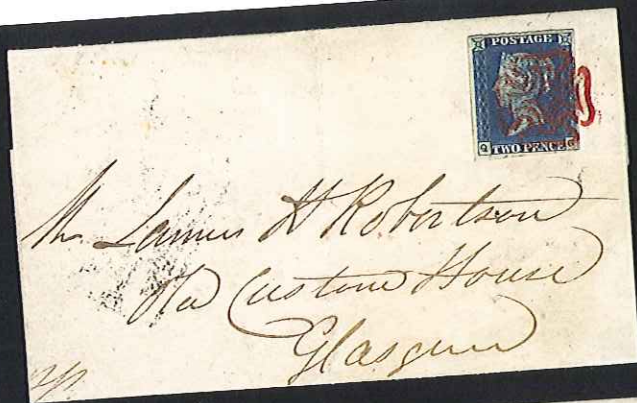 POSTAGE
TWO PENCE
Mr James H Robertson
Old Custom House
Glasgow